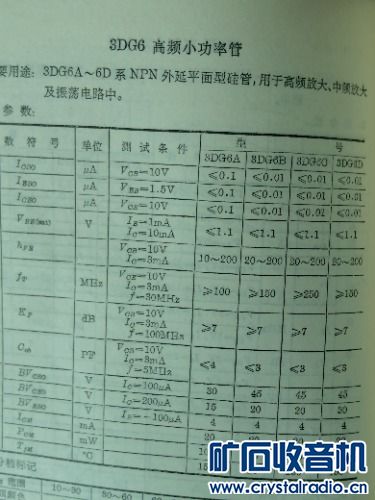 3DG6 高频小功率管
要用途: 3DG6A～6D系NPN外延平面型硅管,用于高频放大、中频放大
及振荡电路中。
参数:
数 符 号 单位 测 试 条 件 型 号
3DG6A 3DG6B 3DG6C 3DG6D
I_CBO μA V_CB=10V ≤0.1 ≤0.01 ≤0.01 ≤0.01
I_EBO μA V_EB=1.5V ≤0.1 ≤0.01 ≤0.01 ≤0.01
I_CEO μA V_CE=10V ≤0.1 ≤0.01 ≤0.01 ≤0.01
V I_B=1mA
I_C=10mA ≤1.1 ≤1.1 ≤1.1 ≤1.1
h_FE V_CE=10V
I_C=3mA 10～200 20～200 20～200 20～200
f_T MHz V_CE=10V
I_C=3mA
f=30MHz ≥100 ≥150 ≥250 ≥150
K_P dB V_CE=10V
I_C=3mA
f=100MHz ≥7 ≥7 ≥7 ≥7
C_ob PF V_CB=10V
I_C=3mA
f=5MHz ≤4 ≤3 ≤3 ≤3
BV_CBO V I_C=100μA 30 45 45 45
BV_CEO V I_C=200μA 15 20 20 30
BV_EBO V
I_CM mA 20 20
P_CM mW
T_jM °C
分档标记
范围 10～30
矿石收音机
www.crystalradio.cn